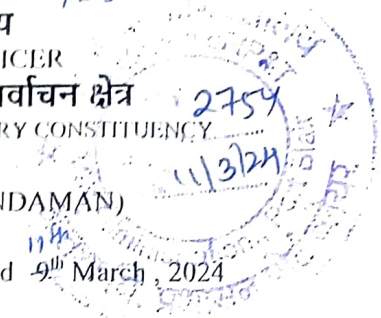 ICER
र्वाचन क्षेत्र
2754
RY CONSTITUENCY
11/3/24
NDAMAN)
11th
d 9th March, 2024